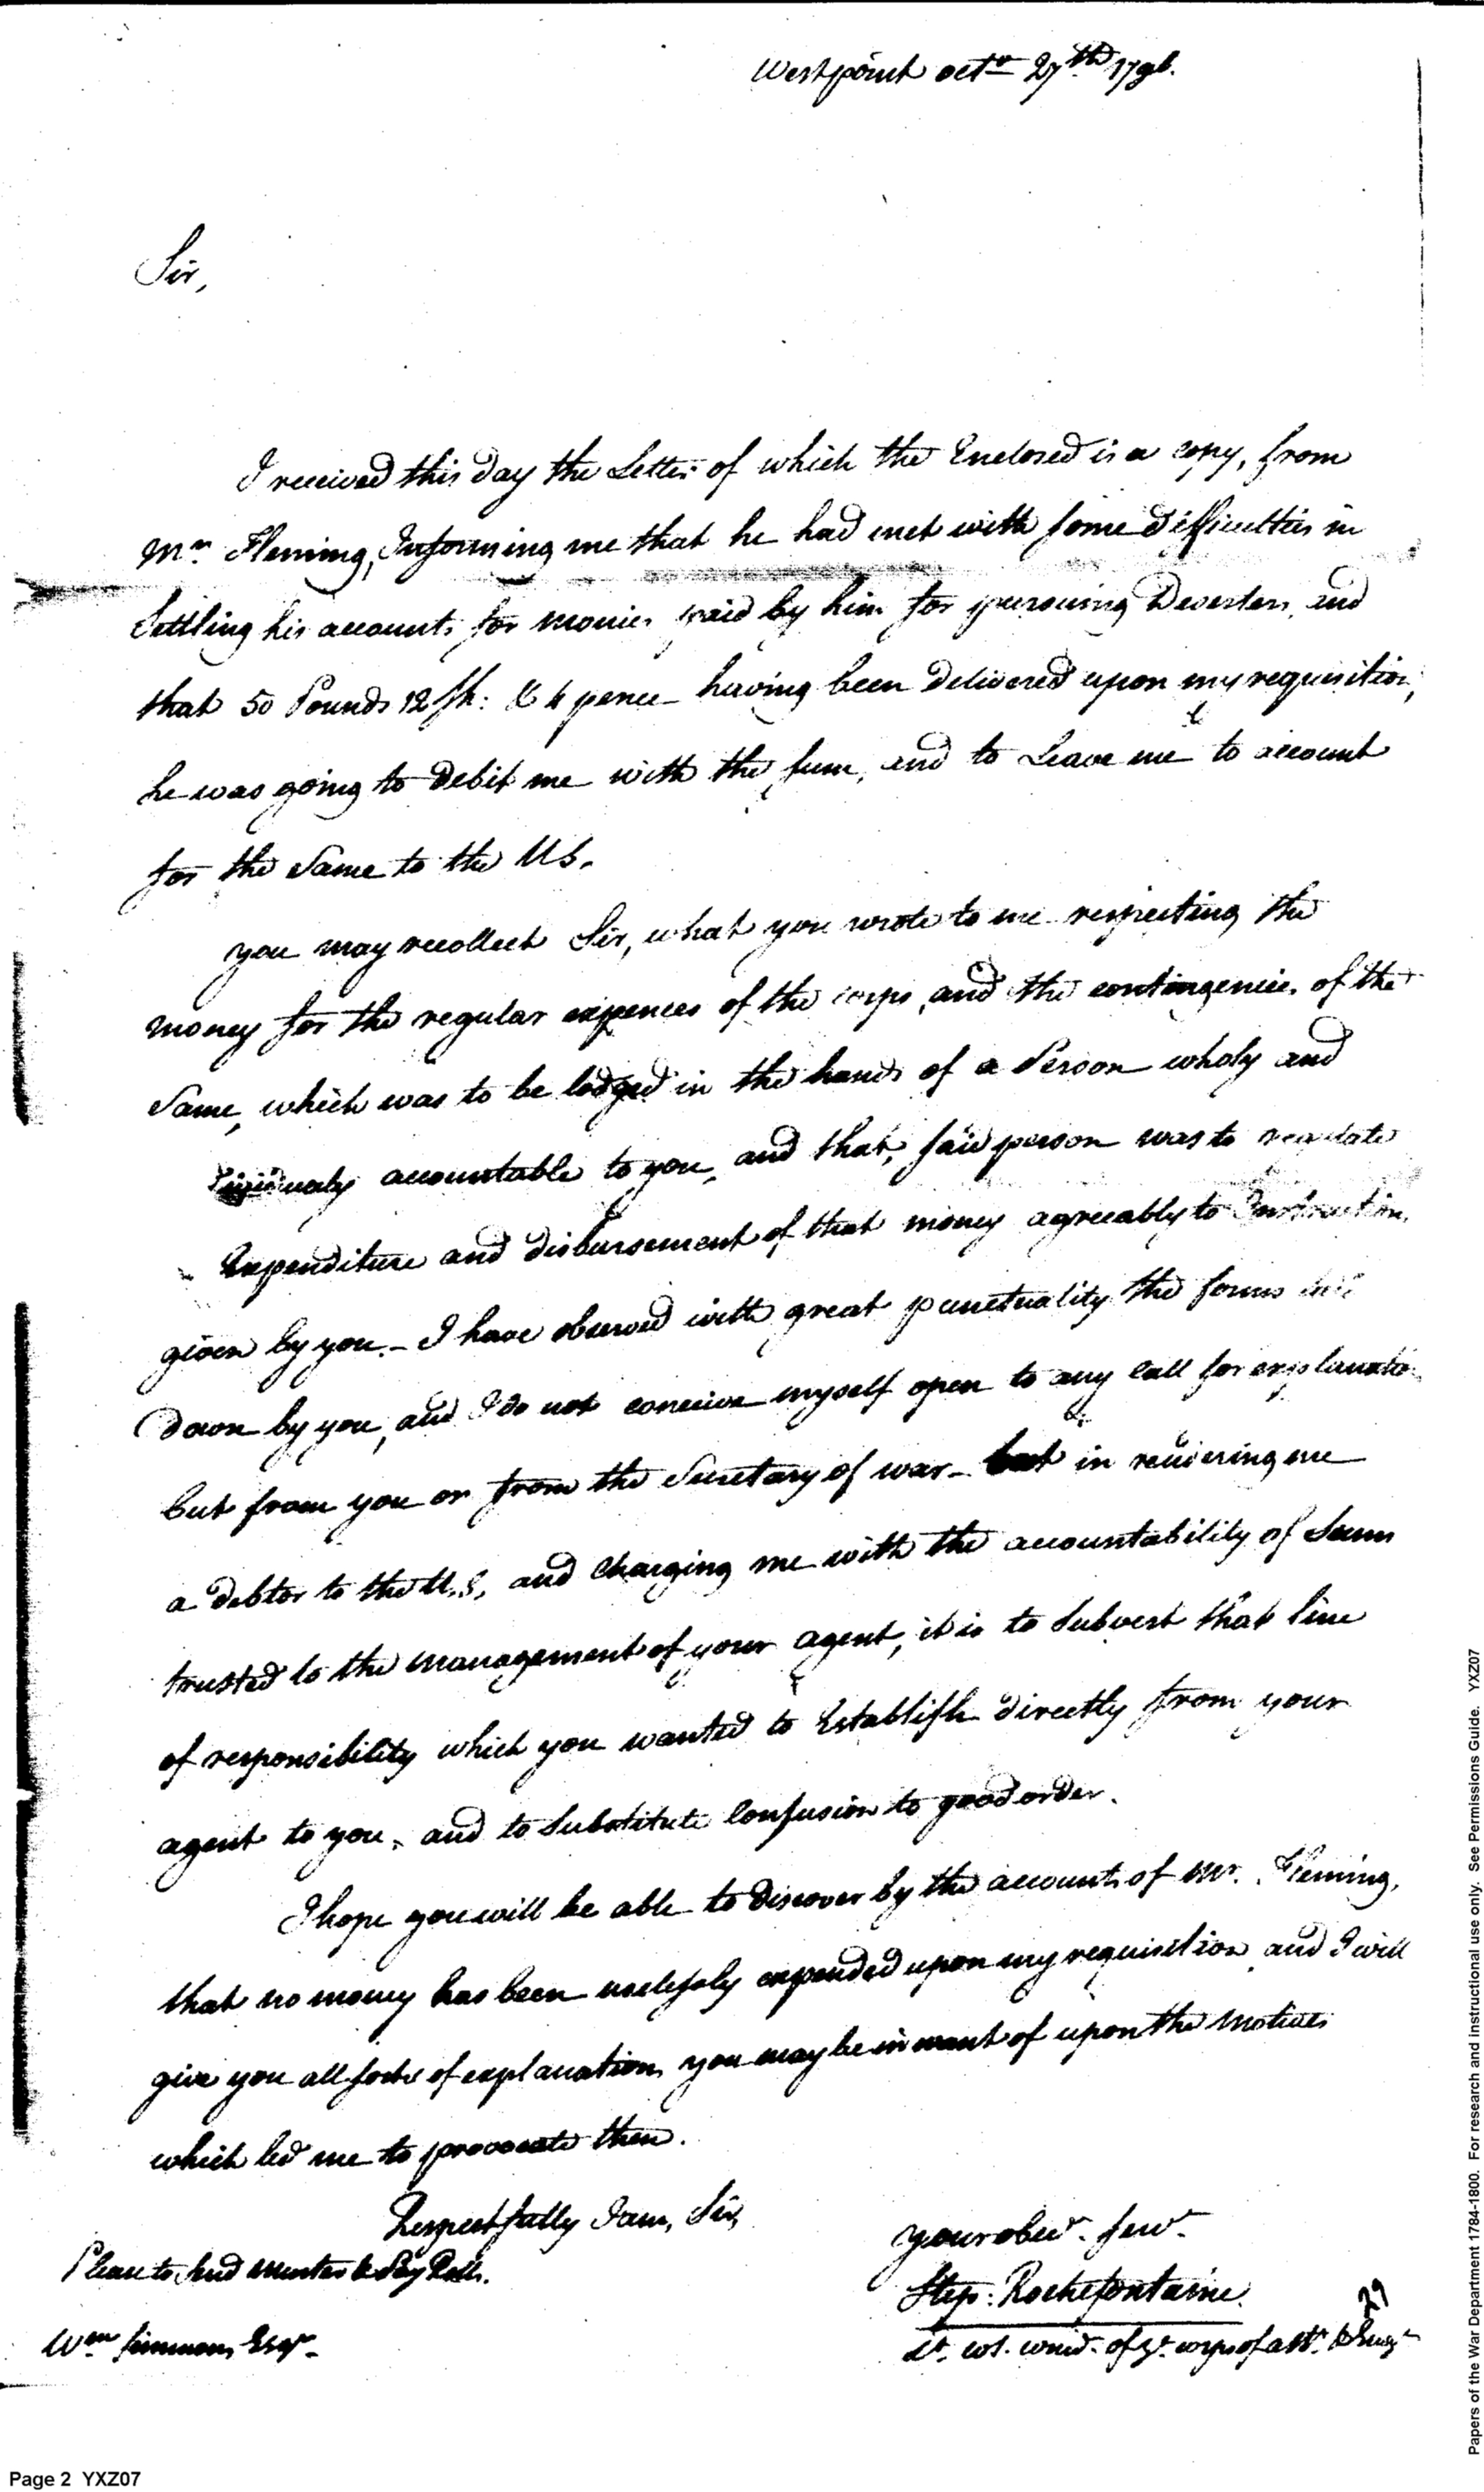 Westpoint octr 27th 1796.
Sir,
I received this day the Letter of which the Enclosed is a copy, from
Mr. Fleming, Informing me that he had met with some difficulties in
Settling his accounts for monies paid by him for pursuing Deserters, and
that 50 Pounds 12 sh: & 4 pence having been delivered upon my requisition,
he was going to debit me with the sum, and to Leave me to account
for the Same to the US.
you may recollect Sir, what you wrote to me respecting the
money for the regular expences of the corps, and the contingencies of the
Same, which was to be lodged in the hands of a Person wholy and
accountable to you, and that, said person was to regulate
Expenditure and disbursement of that money agreeably to Instructions
given by you. - I have observed with great punctuality the forms
down by you, and I do not conceive myself open to any call for explanation
but from you or from the Secretary of war - but in rendering me
a debtor to the U.S, and charging me with the accountability of Sums
trusted to the management of your agent, it is to Subvert that line
of responsibility which you wanted to Establish directly from your
agent to you, and to Substitute Confusion to good order.
I hope you will be able to discover by the accounts of Mr. Fleming,
that no money has been uselessly expended upon my requisition and I will
give you all sorts of explanations you may be in want of upon the motives
which led me to provocate them.
Respectfully I am, Sir,
your obedt. servt.
Please to send Muster & Pay Rolls.
Step: Rochefontaine
29
Wm Simmons Esqr-
Lt. col. comdt. of ye. corps of artt. & Engrs
Page 2 YXZ07
Papers of the War Department 1784-1800. For research and instructional use only. See Permissions Guide. YXZ07